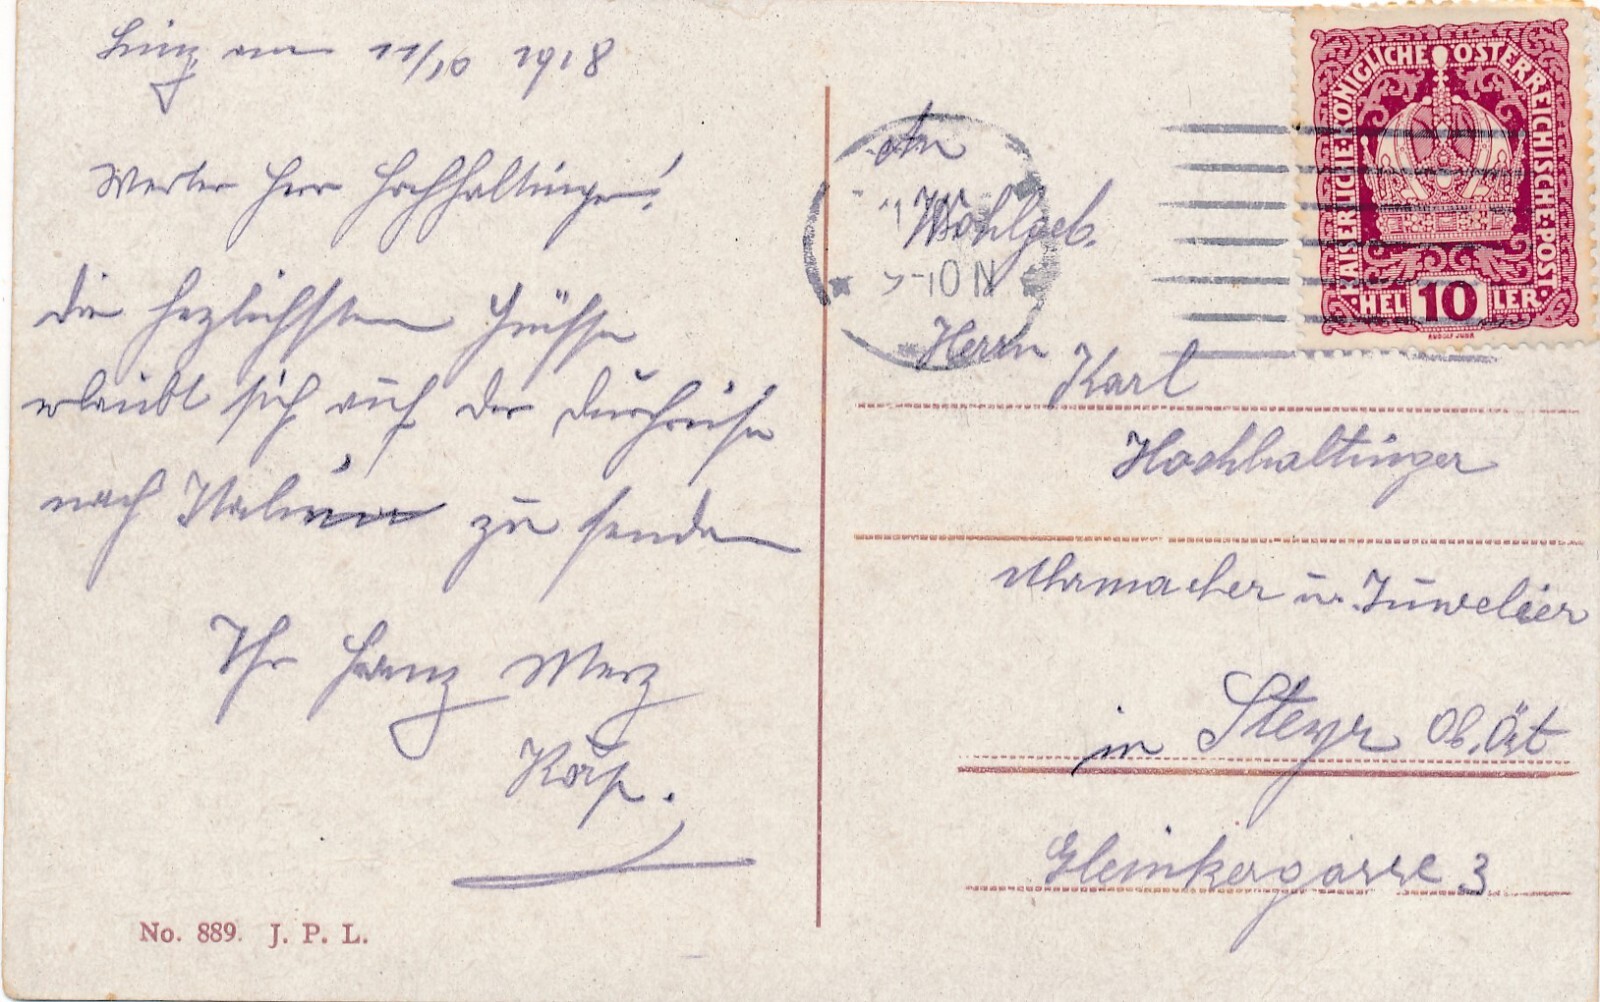 Linz am 11/10 1918
Werter Herr Hochhaltinger!
die herzlichsten Grüsse
erlaubt sich auf der Durchreise
nach Italien zu senden
Ihr Franz Merz
Korp.
No. 889. J. P. L.
An
Wohlgeb.
Herrn
Karl
Hochhaltinger
Uhrmacher u. Juwelier
in Steyr Ob. Öst
Gleinkergasse 3
KAISERLICHE·KÖNIGLICHE·ÖSTERREICHISCHE·POST·
HEL 10 LER
-10 N